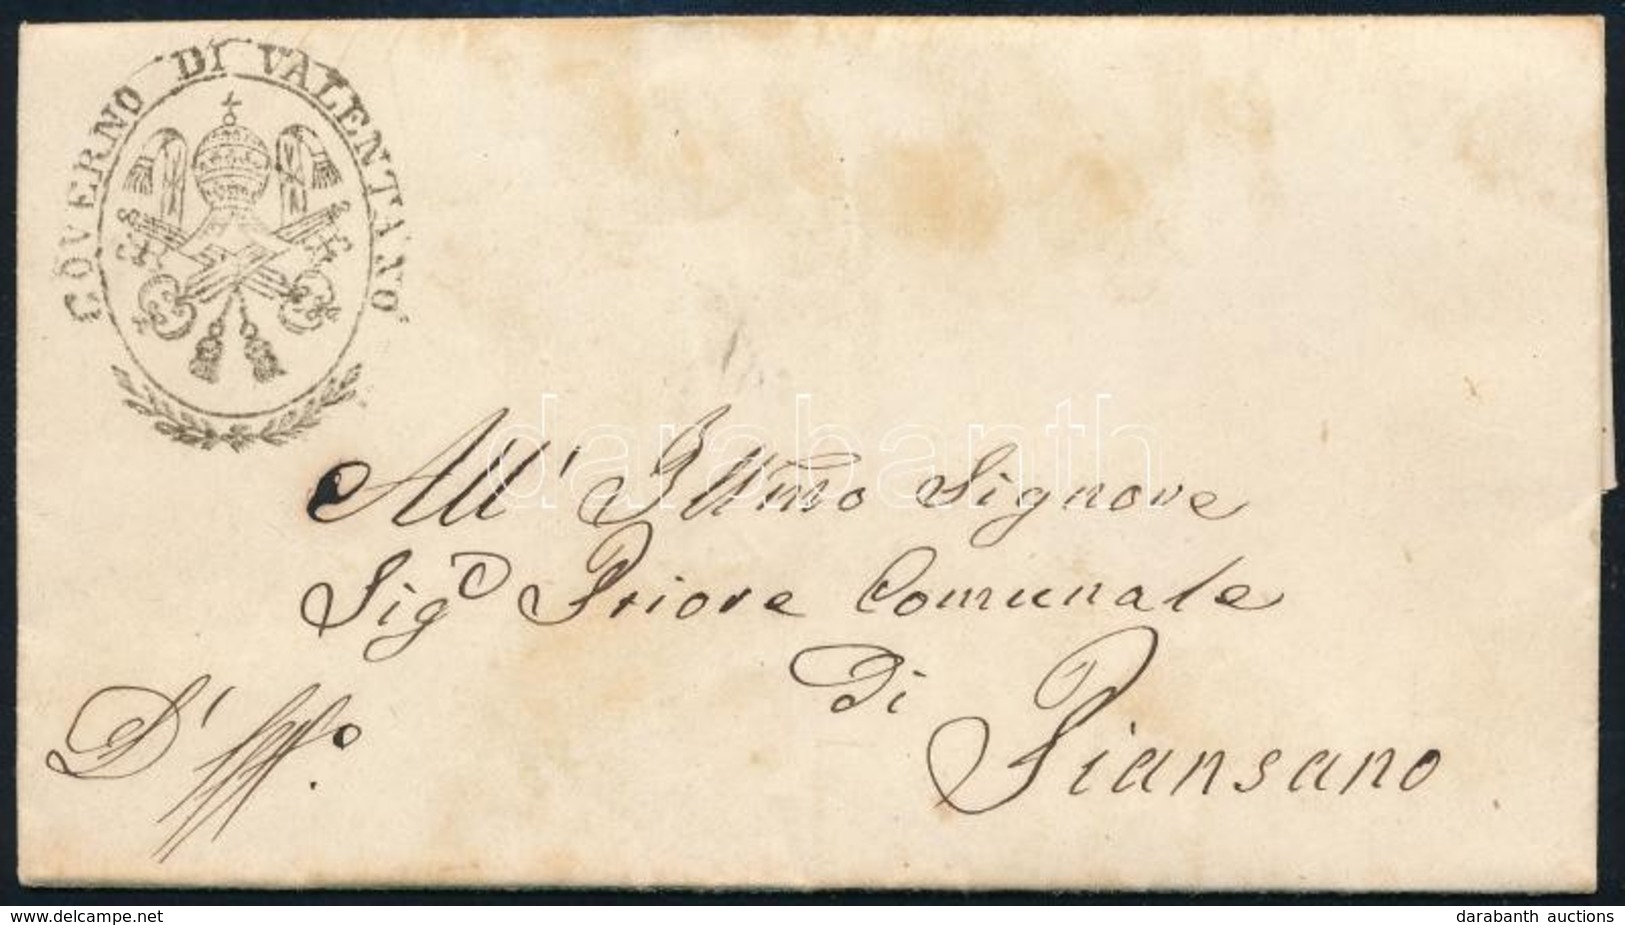 GOVERNO DI VALENTANO
All' Illmo Signore
Sig.r Priore Comunale
Di
Piansano
D'Uff.o
darabanth
delcampe.net
darabanth auctions